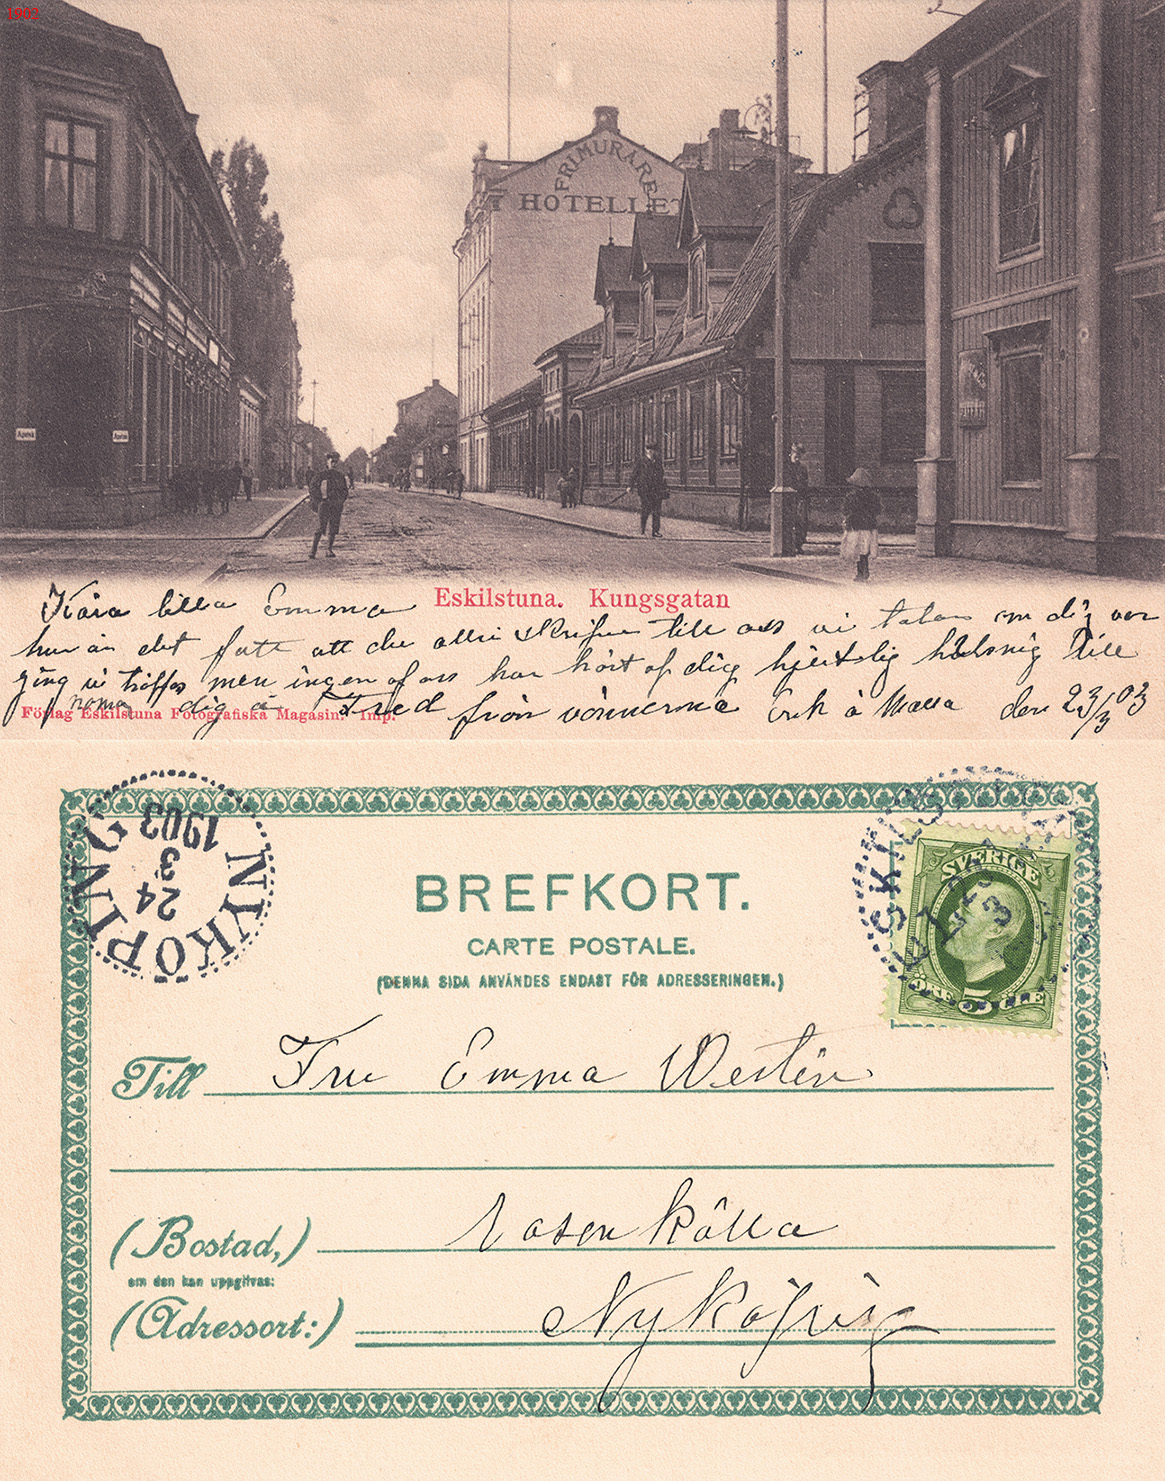 1902
FRIMURARE
HOTELLET
Apotek
Apotek
Eskilstuna. Kungsgatan
Kära lilla Emma
hur är det fatt att du aldri skrifver till oss vi talar om dig var
gång vi träffas men ingen af oss har hört af dig hjertslig hälsnig till
dig å Fred från vännerna Erik å Malla den 23/3 03
Förlag Eskilstuna Fotografiska Magasin. Imp.
NYKÖPING
24
3
1903
BREFKORT.
CARTE POSTALE.
(DENNA SIDA ANVÄNDES ENDAST FÖR ADRESSERINGEN.)
SVERIGE
ÖRE 5 CLE
ESKILSTUNA
Till Fru Emma Westén
(Bostad,) Rosenkälla
om den kan uppgifvas:
(Adressort:) Nyköping